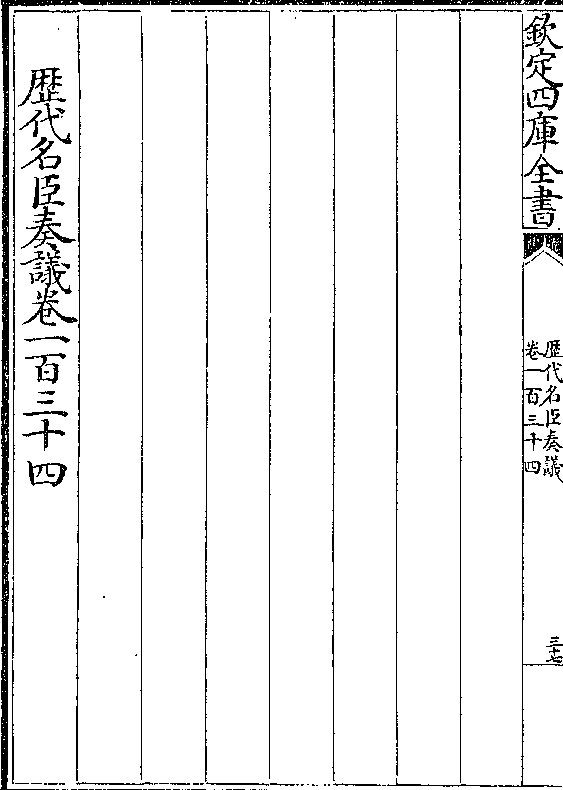 欽定四庫全書
歴代名臣奏議
卷一百三十四
三十七
歴代名臣奏議卷一百三十四